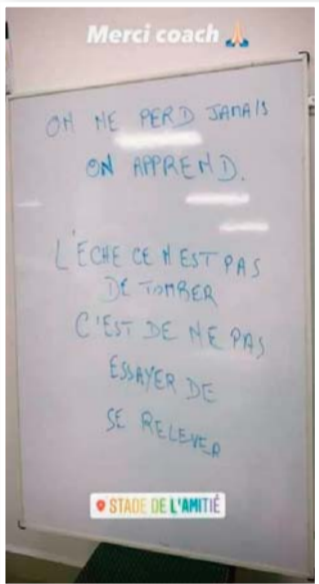 Merci coach 🙏🏻
ON NE PERD JAMAIS
ON APPREND.
L'ÉCHE CE N'EST PAS
DE TOMBER
C'EST DE NE PAS
ESSAYER DE
SE RELEVER
STADE DE L'AMITIÉ